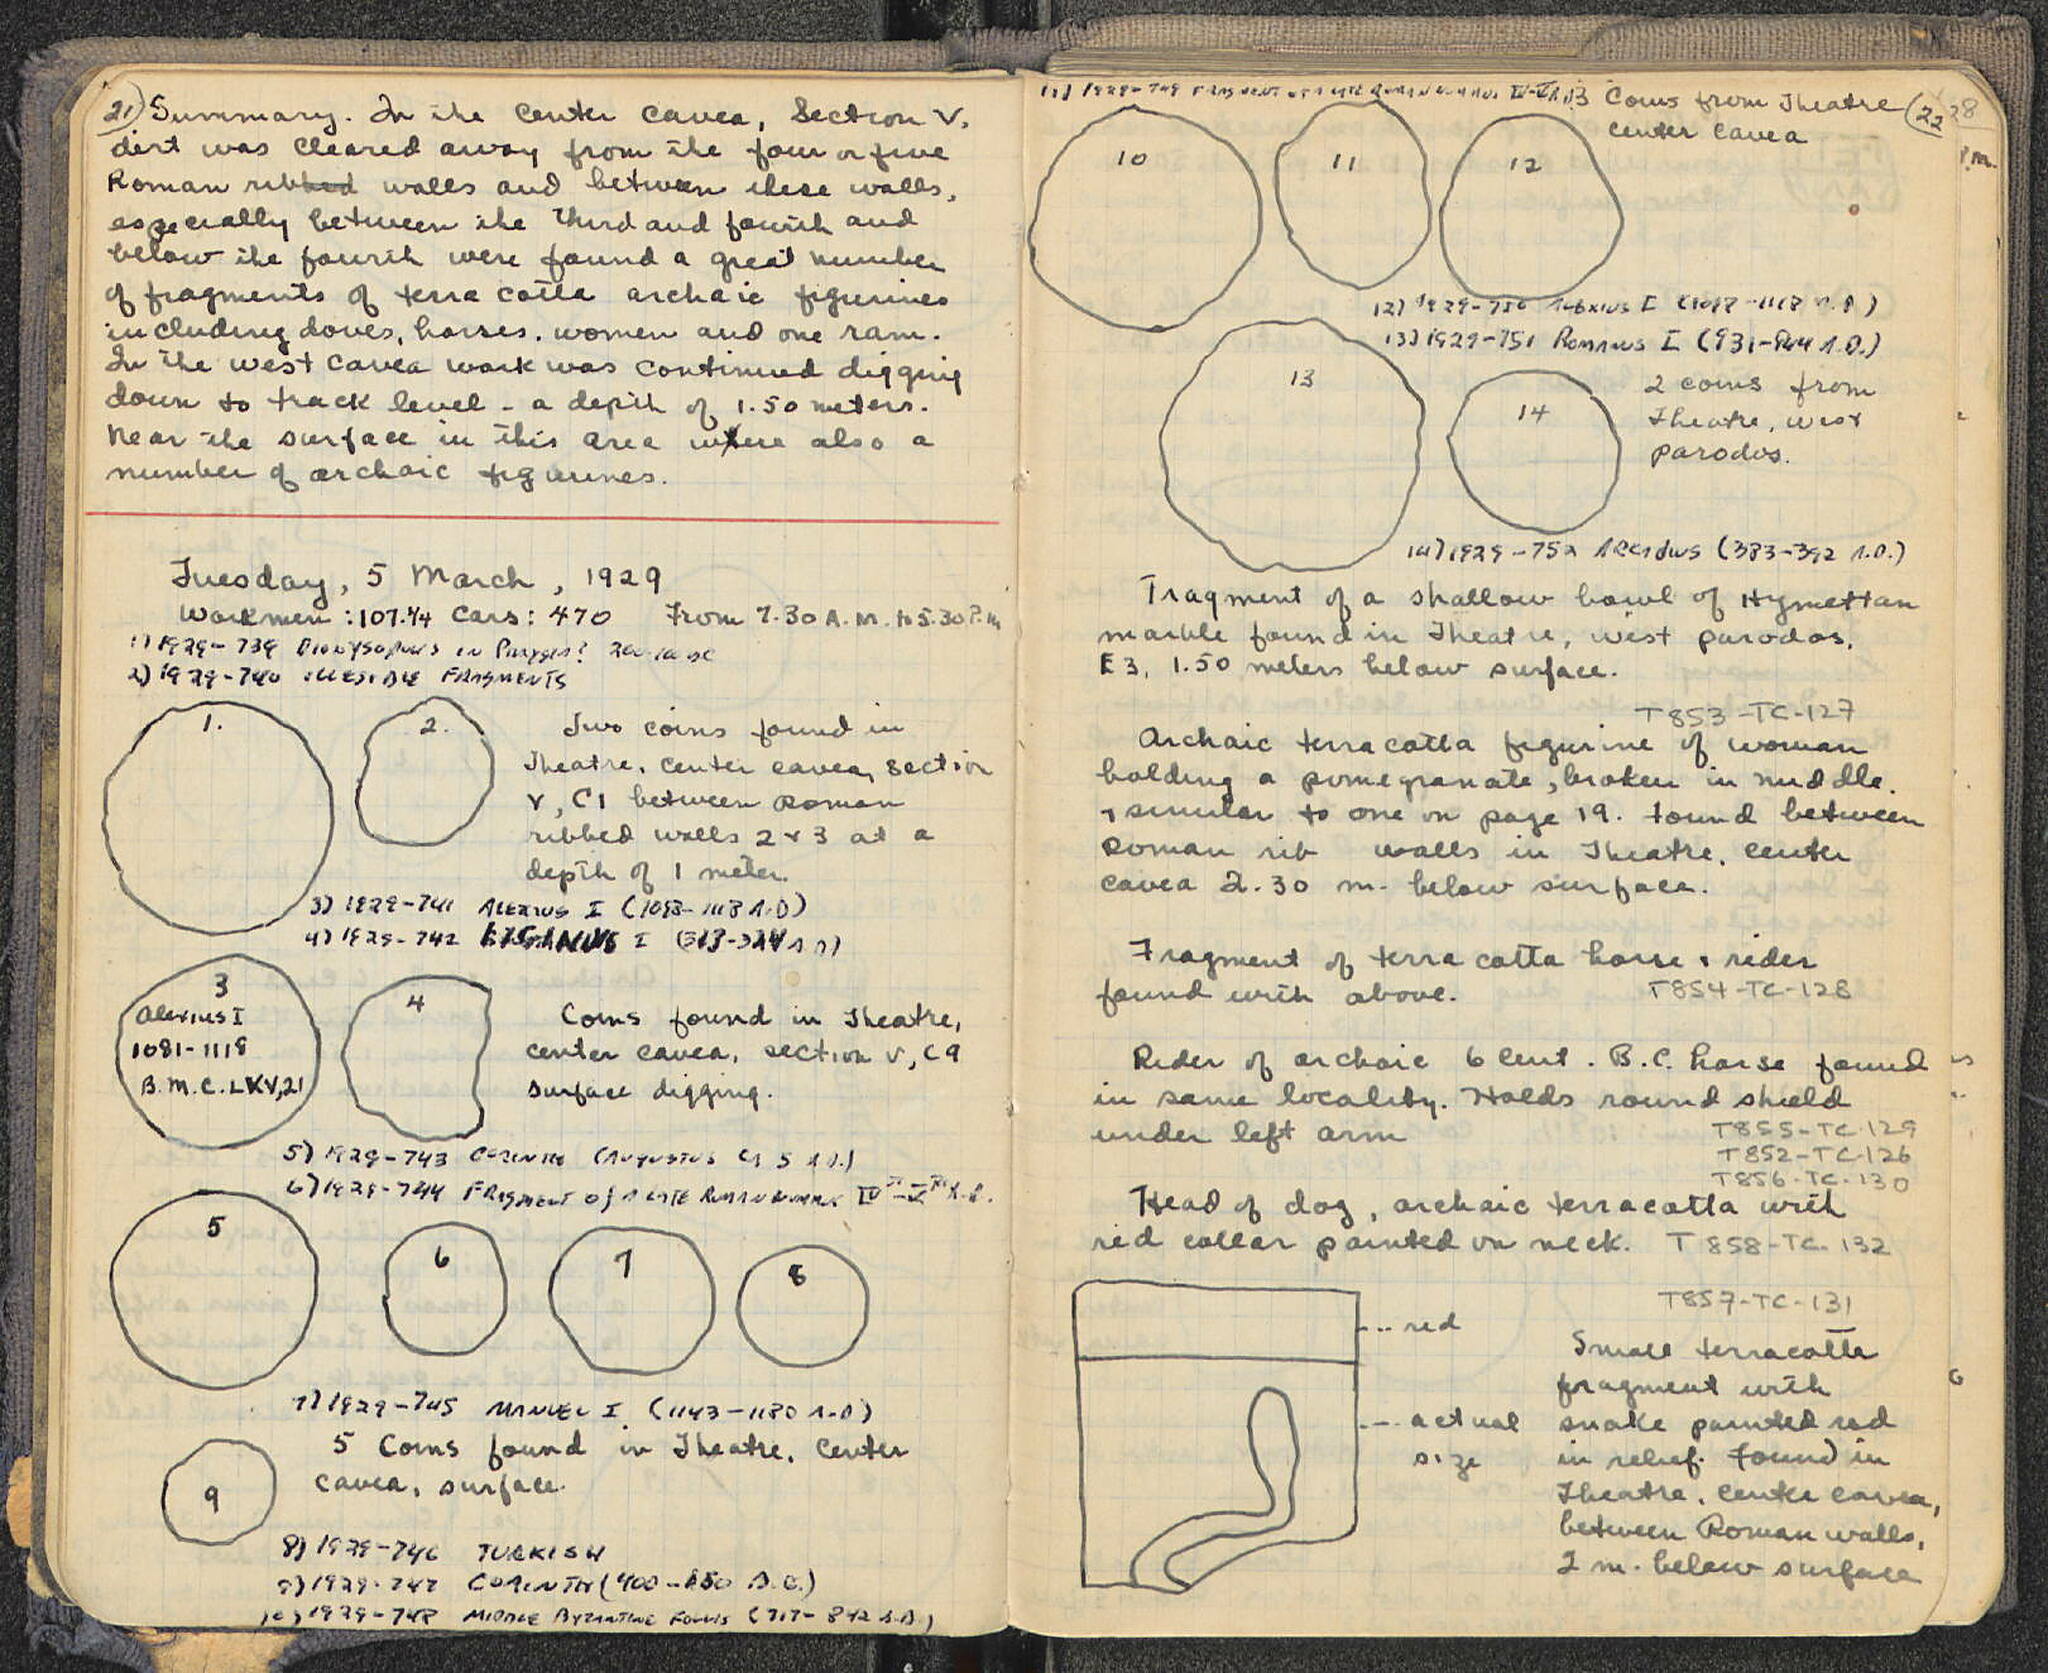 21) Summary. In the center cavea, Section V,
dirt was cleared away from the four or five
Roman ribbed walls and between these walls,
especially between the third and fourth and
below the fourth were found a great number
of fragments of terra cotta archaic figurines
including doves, horses, women and one ram.
In the west cavea work was continued digging
down to track level - a depth of 1.50 meters.
Near the surface in this area where also a
number of archaic figurines.
Tuesday, 5 March, 1929
Workmen: 107.1/4 Cars: 470 From 7.30 A.M. to 5.30 P.M
1) 1929-739 in Phrygia?
2) 1929-740 illegible fragments
1.
2.
Two coins found in
Theatre, center cavea, section
V, C1 between Roman
ribbed walls 2 & 3 at a
depth of 1 meter.
3) 1929-741 Alexius I
4) 1929-742 I
3
Alexius I
1081-1118
B.M.C. LXV, 21
4
Coins found in Theatre,
center cavea, section V, C9
surface digging.
5) 1929-743 Corinth (Augustus ca 5 A.D.)
6) 1929-744 Fragment of a late Roman nummus IV-V A.D.
5
6
7
8
7) 1929-745 Manuel I (1143-1180 A.D)
5 Coins found in Theatre, center
cavea, surface.
9
8) 1929-746 Turkish
9) 1929-747 Corinth
10) 1929-748 Middle Byzantine Follis
11) 1929-749 Fragment of a late Roman nummus IV-V A.D.
3 Coins from Theatre
center cavea
22
28
P.M.
10
11
12
12) 1929-750 Alexius I
13) 1929-751 Romanus I (931-944 A.D.)
13
14
2 coins from
Theatre, west
parodos.
14) 1929-752 Arcadius (383-392 A.D.)
Fragment of a shallow bowl of Hymettan
marble found in Theatre, west parodos,
E3, 1.50 meters below surface.
T853-TC-127
Archaic terracotta figurine of woman
holding a pomegranate, broken in middle.
& similar to one on page 19. Found between
Roman rib walls in Theatre, center
cavea 2.30 m. below surface.
Fragment of terra cotta horse & rider
found with above.
T854-TC-128
Rider of archaic 6 cent. B.C. horse found
in same locality. Holds round shield
under left arm
T855-TC-129
T852-TC-126
T856-TC-130
Head of dog, archaic terracotta with
red collar painted on neck. T 858-TC. 132
T857-TC-131
red
actual
size
Small terracotta
fragment with
snake painted red
in relief. Found in
Theatre, center cavea,
between Roman walls,
2 m. below surface